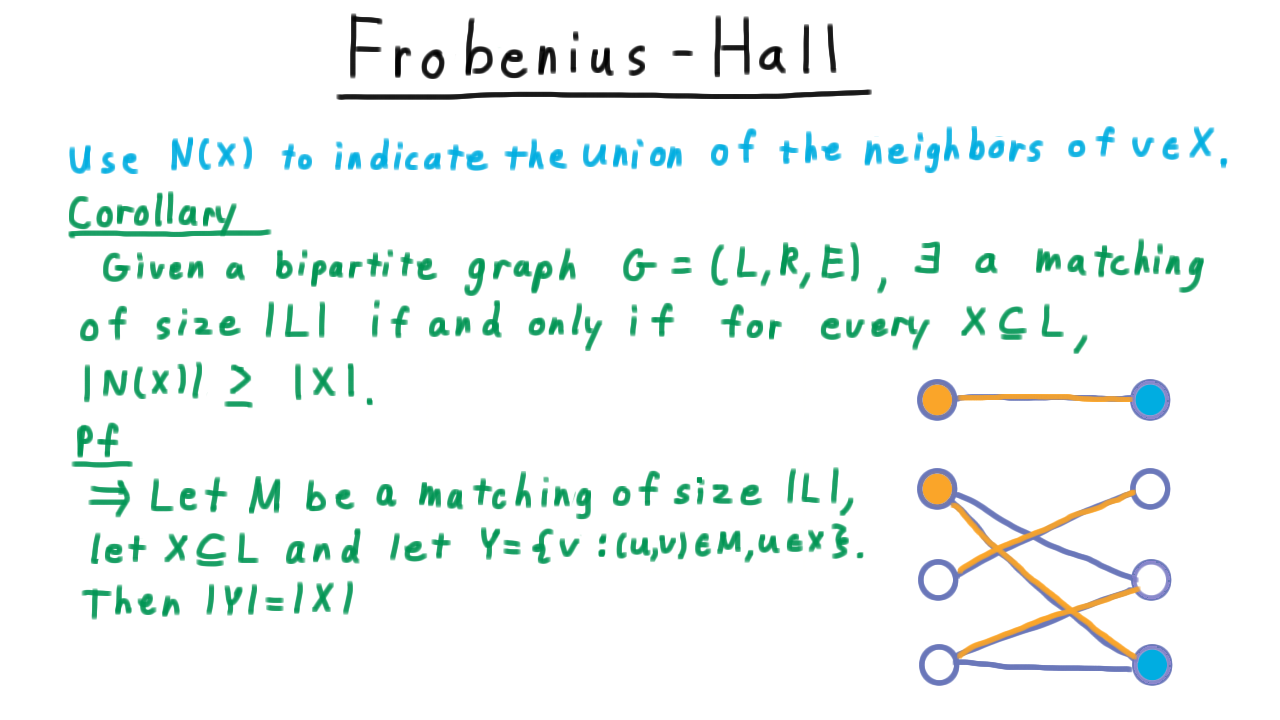 Frobenius - Hall
Use N(X) to indicate the union of the neighbors of v∈X.
Corollary
Given a bipartite graph G = (L,R,E), ∃ a matching
of size |L| if and only if for every X⊆L,
|N(X)| ≥ |X|.
Pf
⇒ Let M be a matching of size |L|,
let X⊆L and let Y={v:(u,v)∈M,u∈X}.
Then |Y|=|X|